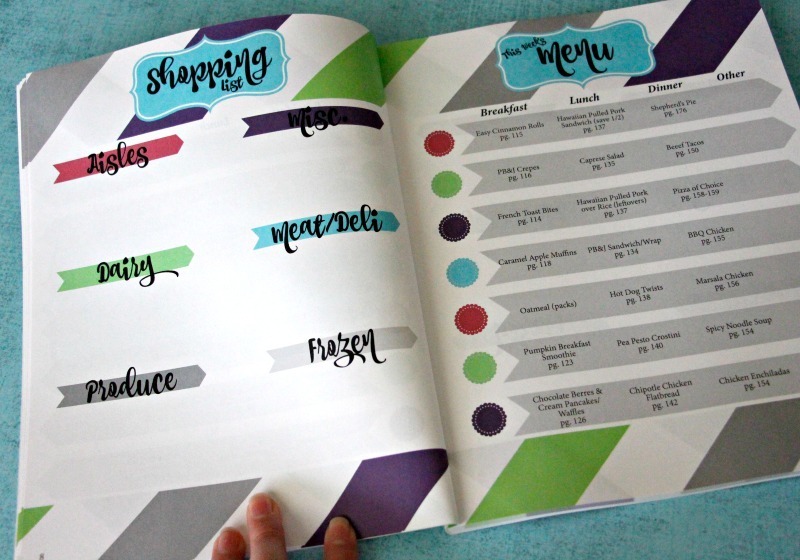 shopping
list
Misc.
Aisles
Meat/Deli
Dairy
Frozen
Produce
This week's
menu
Breakfast Lunch Dinner Other
Easy Cinnamon Rolls
pg. 115
Hawaiian Pulled Pork
Sandwich (save 1/2)
pg. 137
Shepherd's Pie
pg. 176
PB&J Crepes
pg. 116
Caprese Salad
pg. 135
Beef Tacos
pg. 150
French Toast Bites
pg. 114
Hawaiian Pulled Pork
over Rice (leftovers)
pg. 137
Pizza of Choice
pg. 158-159
Caramel Apple Muffins
pg. 118
PB&J Sandwich/Wrap
pg. 134
BBQ Chicken
pg. 155
Oatmeal (packs)
Hot Dog Twists
pg. 138
Marsala Chicken
pg. 156
Pumpkin Breakfast
Smoothie
pg. 123
Pea Pesto Crostini
pg. 140
Spicy Noodle Soup
pg. 154
Chocolate Berres &
Cream Pancakes/
Waffles
pg. 126
Chipotle Chicken
Flatbread
pg. 142
Chicken Enchiladas
pg. 154